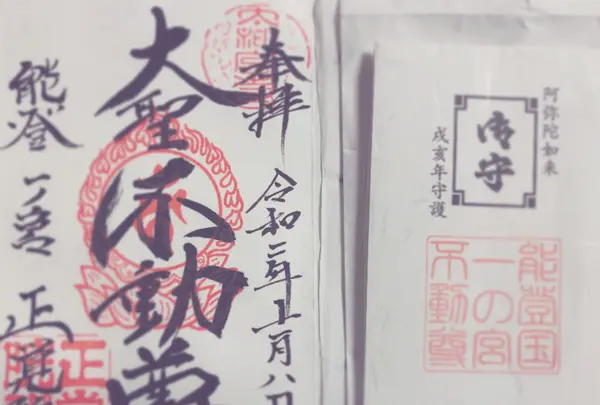 奉拝
令和二年十一月八日
大聖不動尊
能登一ノ宮 正覚院
正覚院
阿弥陀如来
御守
戌亥年守護
能登国
一の宮
不動尊